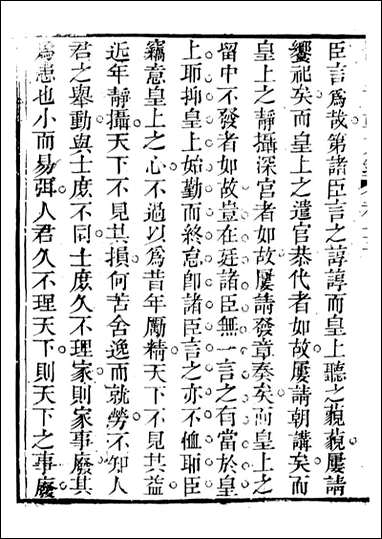 臣言爲哉第諸臣言之諄諄而皇上聽之藐藐屢請
饗祀矣而皇上之遣官恭代者如故屢請朝講矣而
皇上之靜攝深宮者如故屢請發章奏矣而皇上之
留中不發者如故豈在廷諸臣無一言之有當於皇
上耶抑皇上始勤而終怠卽諸臣言之亦不恤耶臣
竊意皇上之心不過以爲昔年厲精天下不見其益
近年靜攝天下不見其損何苦舍逸而就勞不知人
君之舉動與士庶不同士庶久不理家則家事廢其
爲患也小而易弭人君久不理天下則天下之事廢